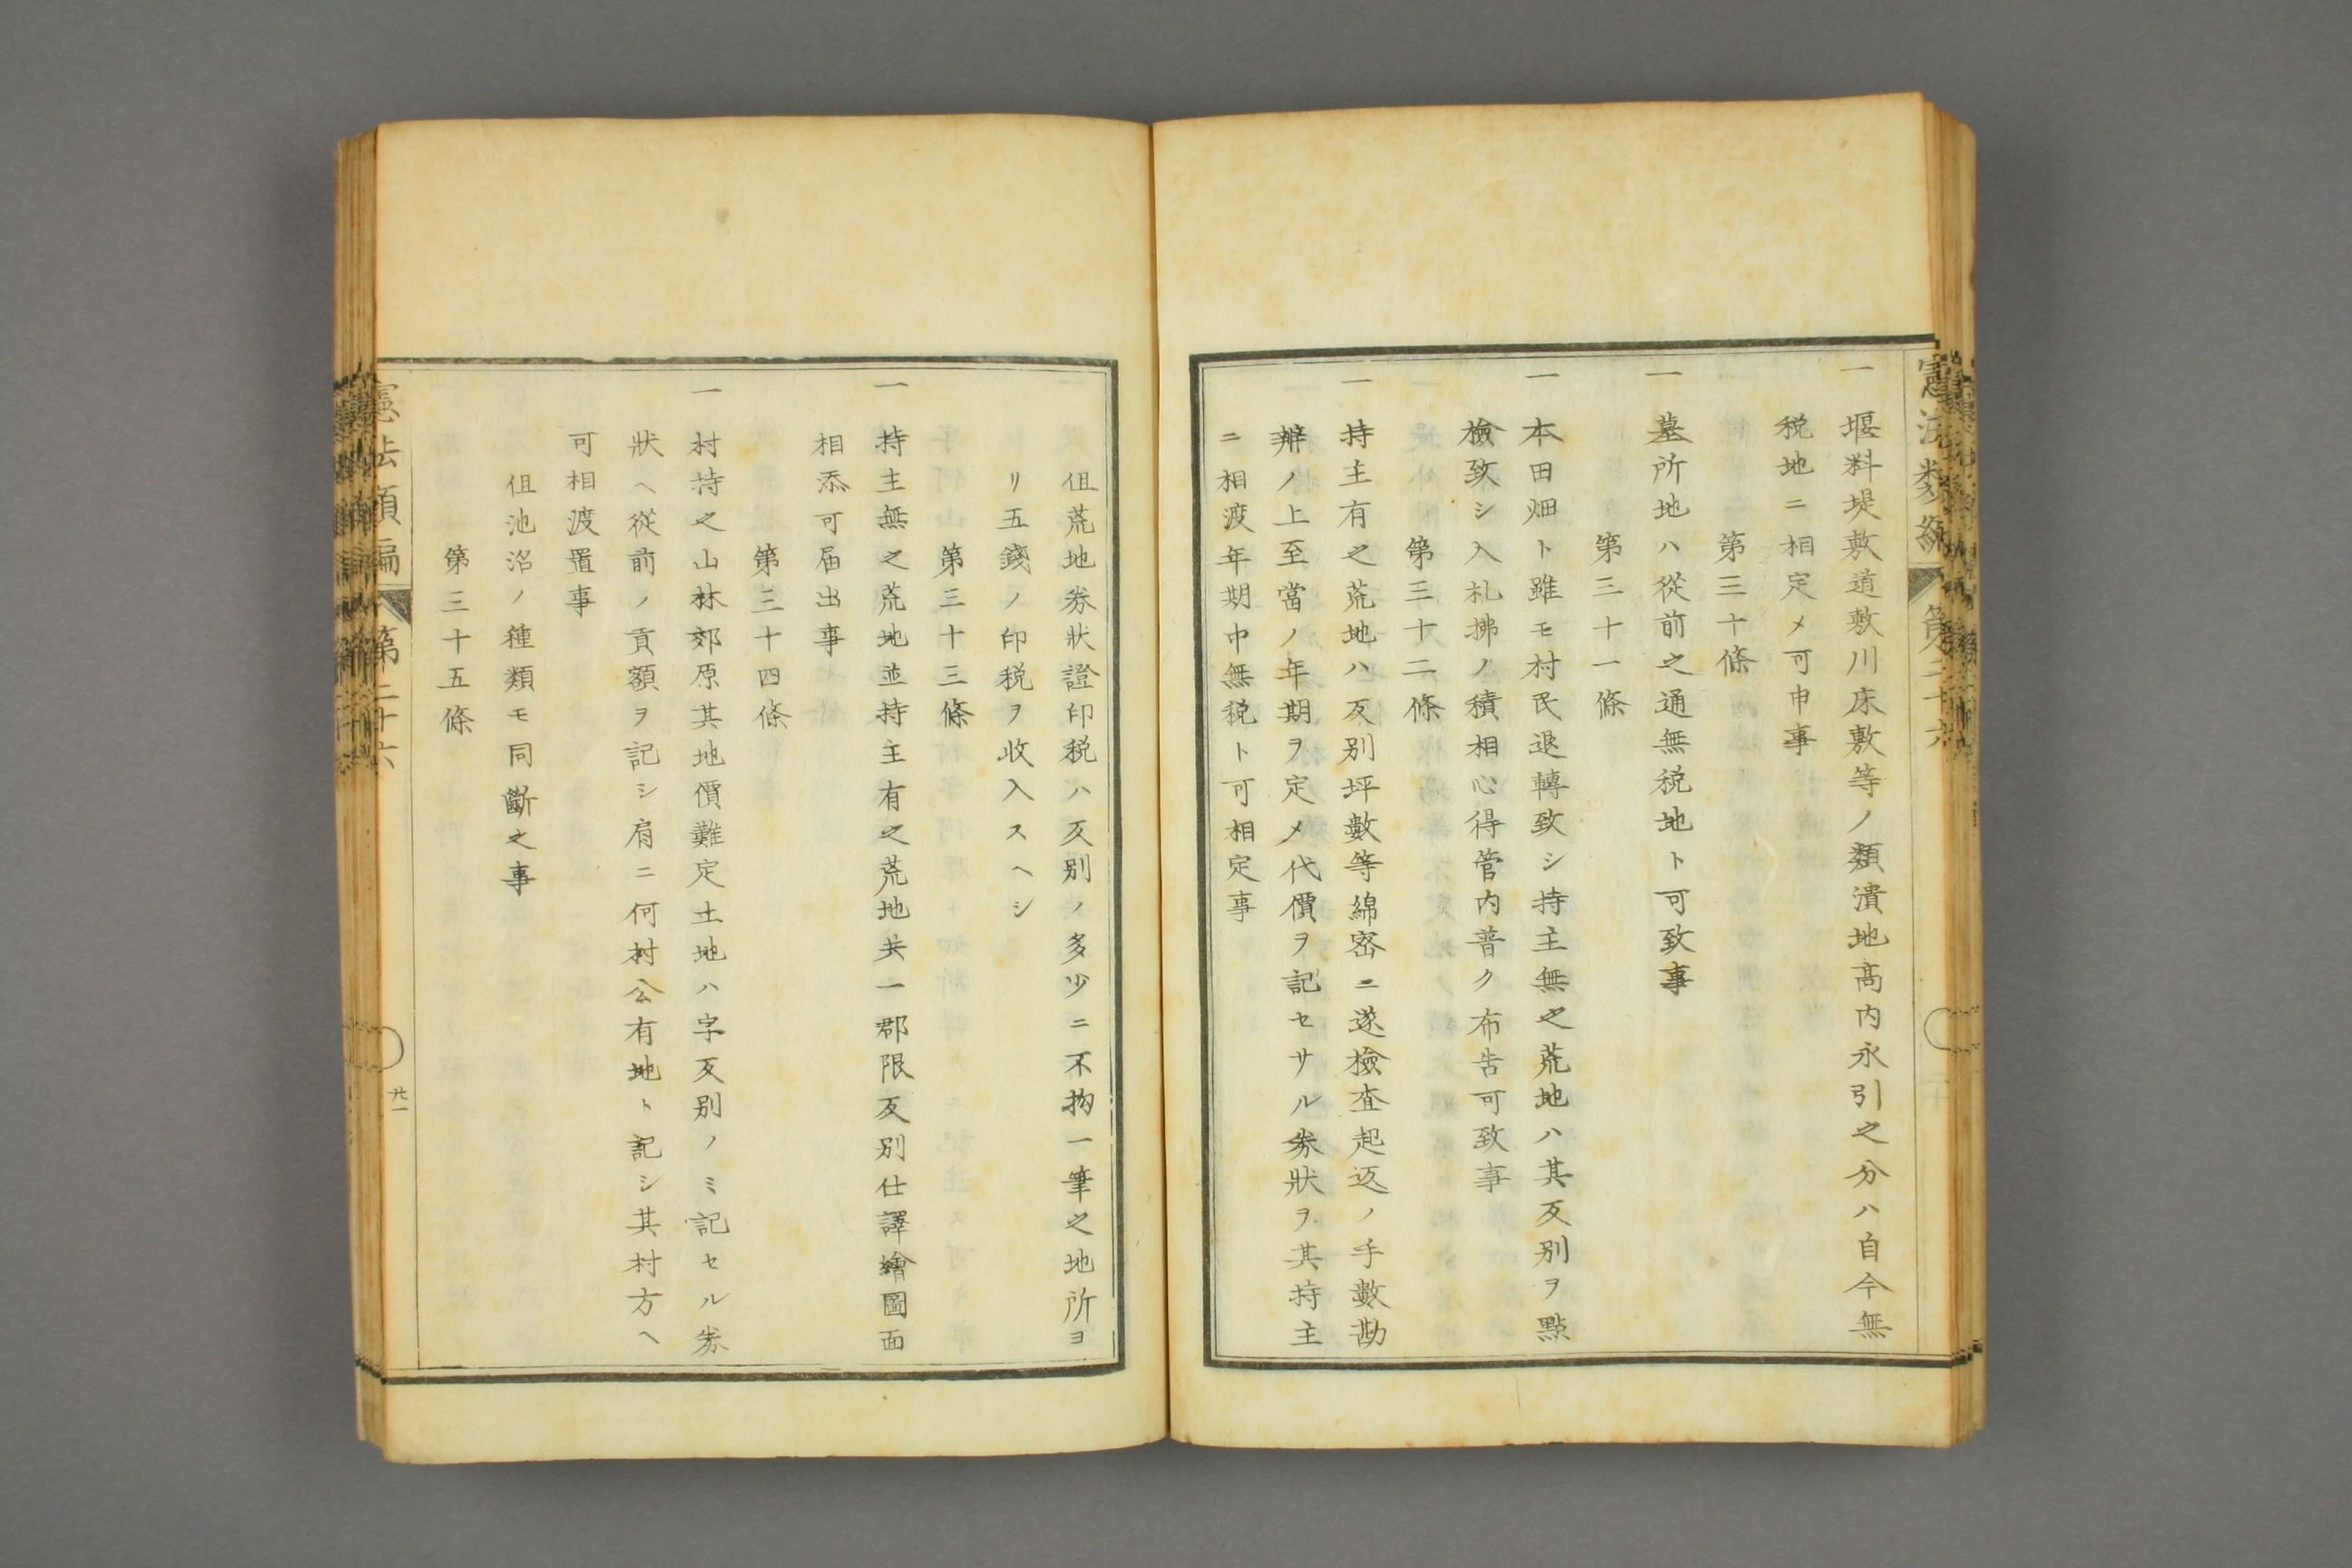 憲法類編 第二十六
一 堰料堤敷道敷川床敷等ノ類潰地高内永引之分ハ自今無
税地ニ相定メ可申事
第三十條
一 墓所地ハ從前之通無税地ト可致事
第三十一條
一 本田畑ト雖モ村民退轉致シ持主無之荒地ハ其反別ヲ點
檢致シ入札拂ノ積相心得管内普ク布告可致事
第三十二條
一 持主有之荒地ハ反別坪數等綿密ニ遂檢査起返ノ手數勘
辨ノ上至當ノ年期ヲ定メ代價ヲ記セサル券狀ヲ其持主
ニ相渡年期中無税ト可相定事
但荒地券狀證印税ハ反別ノ多少ニ不拘一筆之地所ヨ
リ五錢ノ印税ヲ收入スヘシ
第三十三條
一 持主無之荒地並持主有之荒地共一郡限反別仕譯繪圖面
相添可届出事
第三十四條
一 村持之山林郊原其地價難定土地ハ字反別ノミ記セル券
狀ヘ從前ノ貢額ヲ記シ肩ニ何村公有地ト記シ其村方ヘ
可相渡置事
但池沼ノ種類モ同斷之事
第三十五條
憲法類編 第二十六
廿一